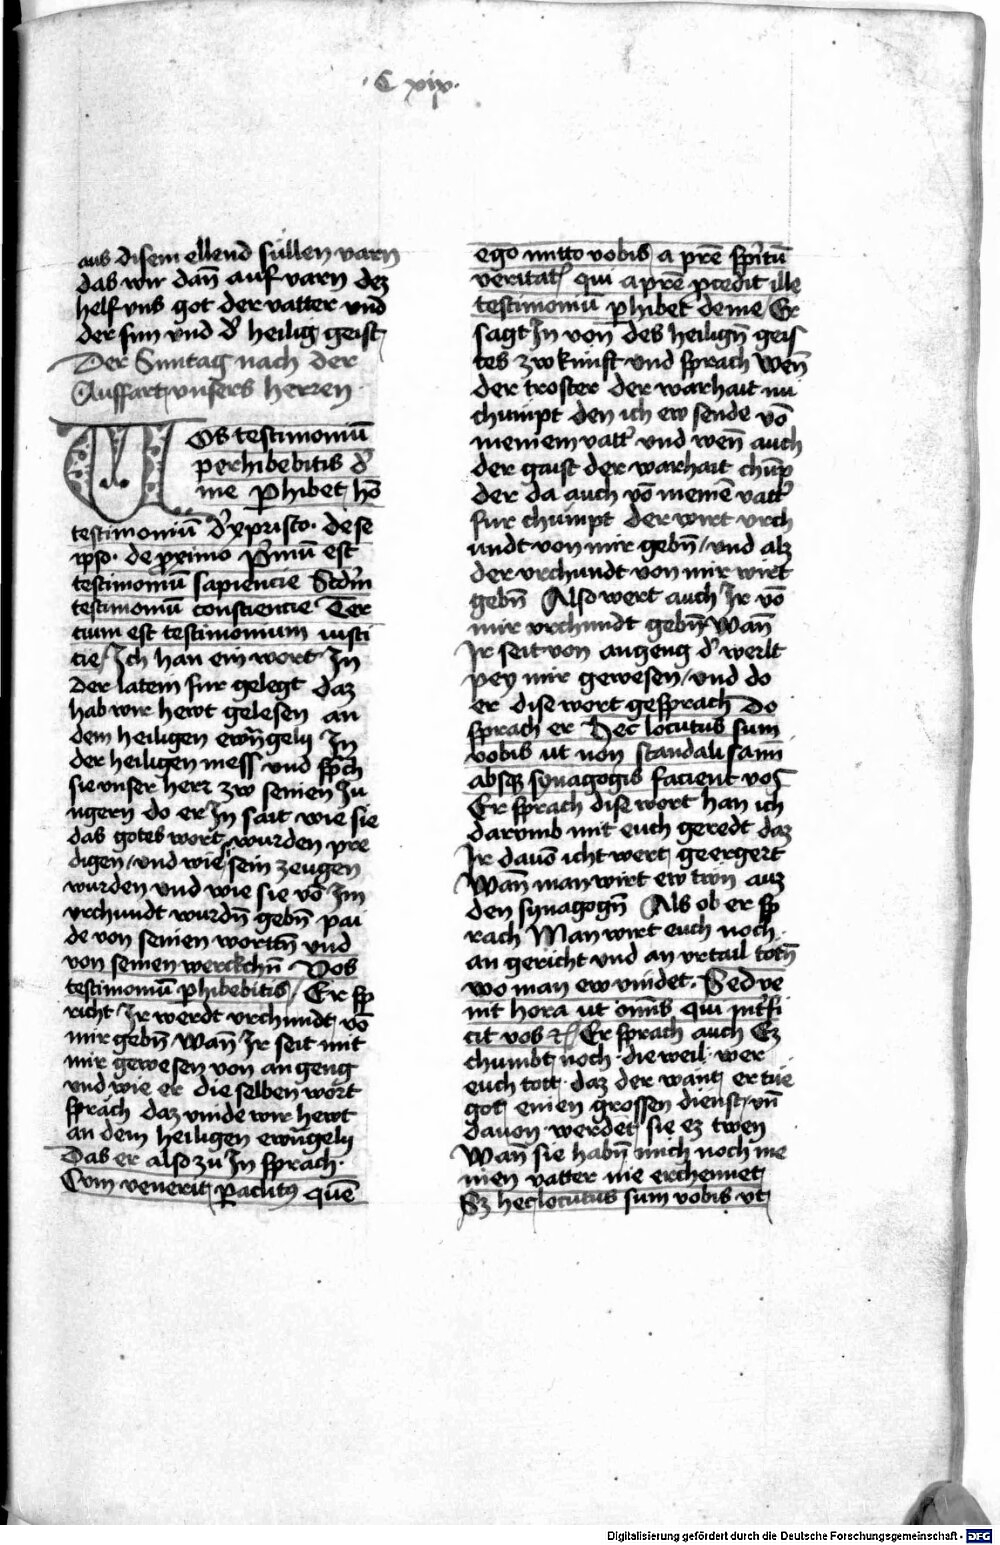 · C xix ·
aus disem ellend süllen varn
das wir dan̄ auf varn dez
helf vns got der vatter vnd
der sun vnd d' heilig geist
Der Sunntag nach der
Auffart vnsers herren
Vos testimoniū
perhibebitis d'
me phibet, hō
testimoniū d' xpristo · de se
ipso · de proximo Pⁱmū est
testimoniū sapiencie Scd'm
testimoniū consciencie Ter
cium est testimonium iusti
cie / Ich han ein wort In
der latein fur gelegt daz
hab wir hewt gelesen an
dem heiligen ewn̄gely In
der heiligen mess vnd spch
sie vnser herr zw seinen Ju
ngern do er In sait wie sie
das gotes wort wurden pre
digen / vnd wie sein zeugen
wurden vnd wie sie vō Im
vrchundt wurdn̄ gebn̄ pai
de von seinen wortn̄ vnd
von seinen werckchn̄ Vos
testimoniū phibebitis / Er sp
richt Ir werdt vrchundt vō
mir gebn̄ wan̄ Ir seit mit
mir gewesen von angeng
vnd wie er die selben wort
sprach daz vinde wir hewt
an dem heiligen ewn̄gely
Das er also zu In sprach ·
Cum venerit paclitꝰ quē
ego mitto vobis a prē spi̅tū
veritat qui a prē pcedit ille
testimoniū phibet de me / Er
sagt In von des heilign̄ geis
tes zwkunft vnd sprach wen̄
der troster der warhait nu
chumpt den ich ew sende vō
meinem vatt' vnd wen̄ auch
der gaist der warhait chūp
der da auch vō meinē vatt'
fur chumpt der wirt vrch
undt von mir gebn̄ / vnd alz
der vrchundt von mir wirt
gebn̄ Also wert auch Ir vō
mir vrchundt gebn̄ Wan̄
Ir seit von angeng d' werlt
pey mir gewesen / vnd do
er dise wort gesprach Do
sprach er Hec locutus sum
vobis ut non scandalisami
absqꝫ synagogis facient vos
Er sprach dise wort han ich
darvmb mit euch geredt daz
Ir davō icht wert geergert
Wan̄ man wirt ew twn auz
den synagogn̄ Als ob er sp
rach Man wirt euch noch
an gericht vnd an vrtail totn̄
wo man ew vindet · Sed ve
nit hora ut om̄s qui int'fi
cit vos ⁊c̄ / Er sprach auch Ez
chumbt noch die weil wer
euch tott · daz der want er tüe
got einen grossen dienst / vn̄
davon werdet sie ez twen
Wan̄ sie habn̄ mich noch me
inen vatter nie erchennet
Sꝫ hec locutus sum vobis vt
Digitalisierung gefördert durch die Deutsche Forschungsgemeinschaft - DFG